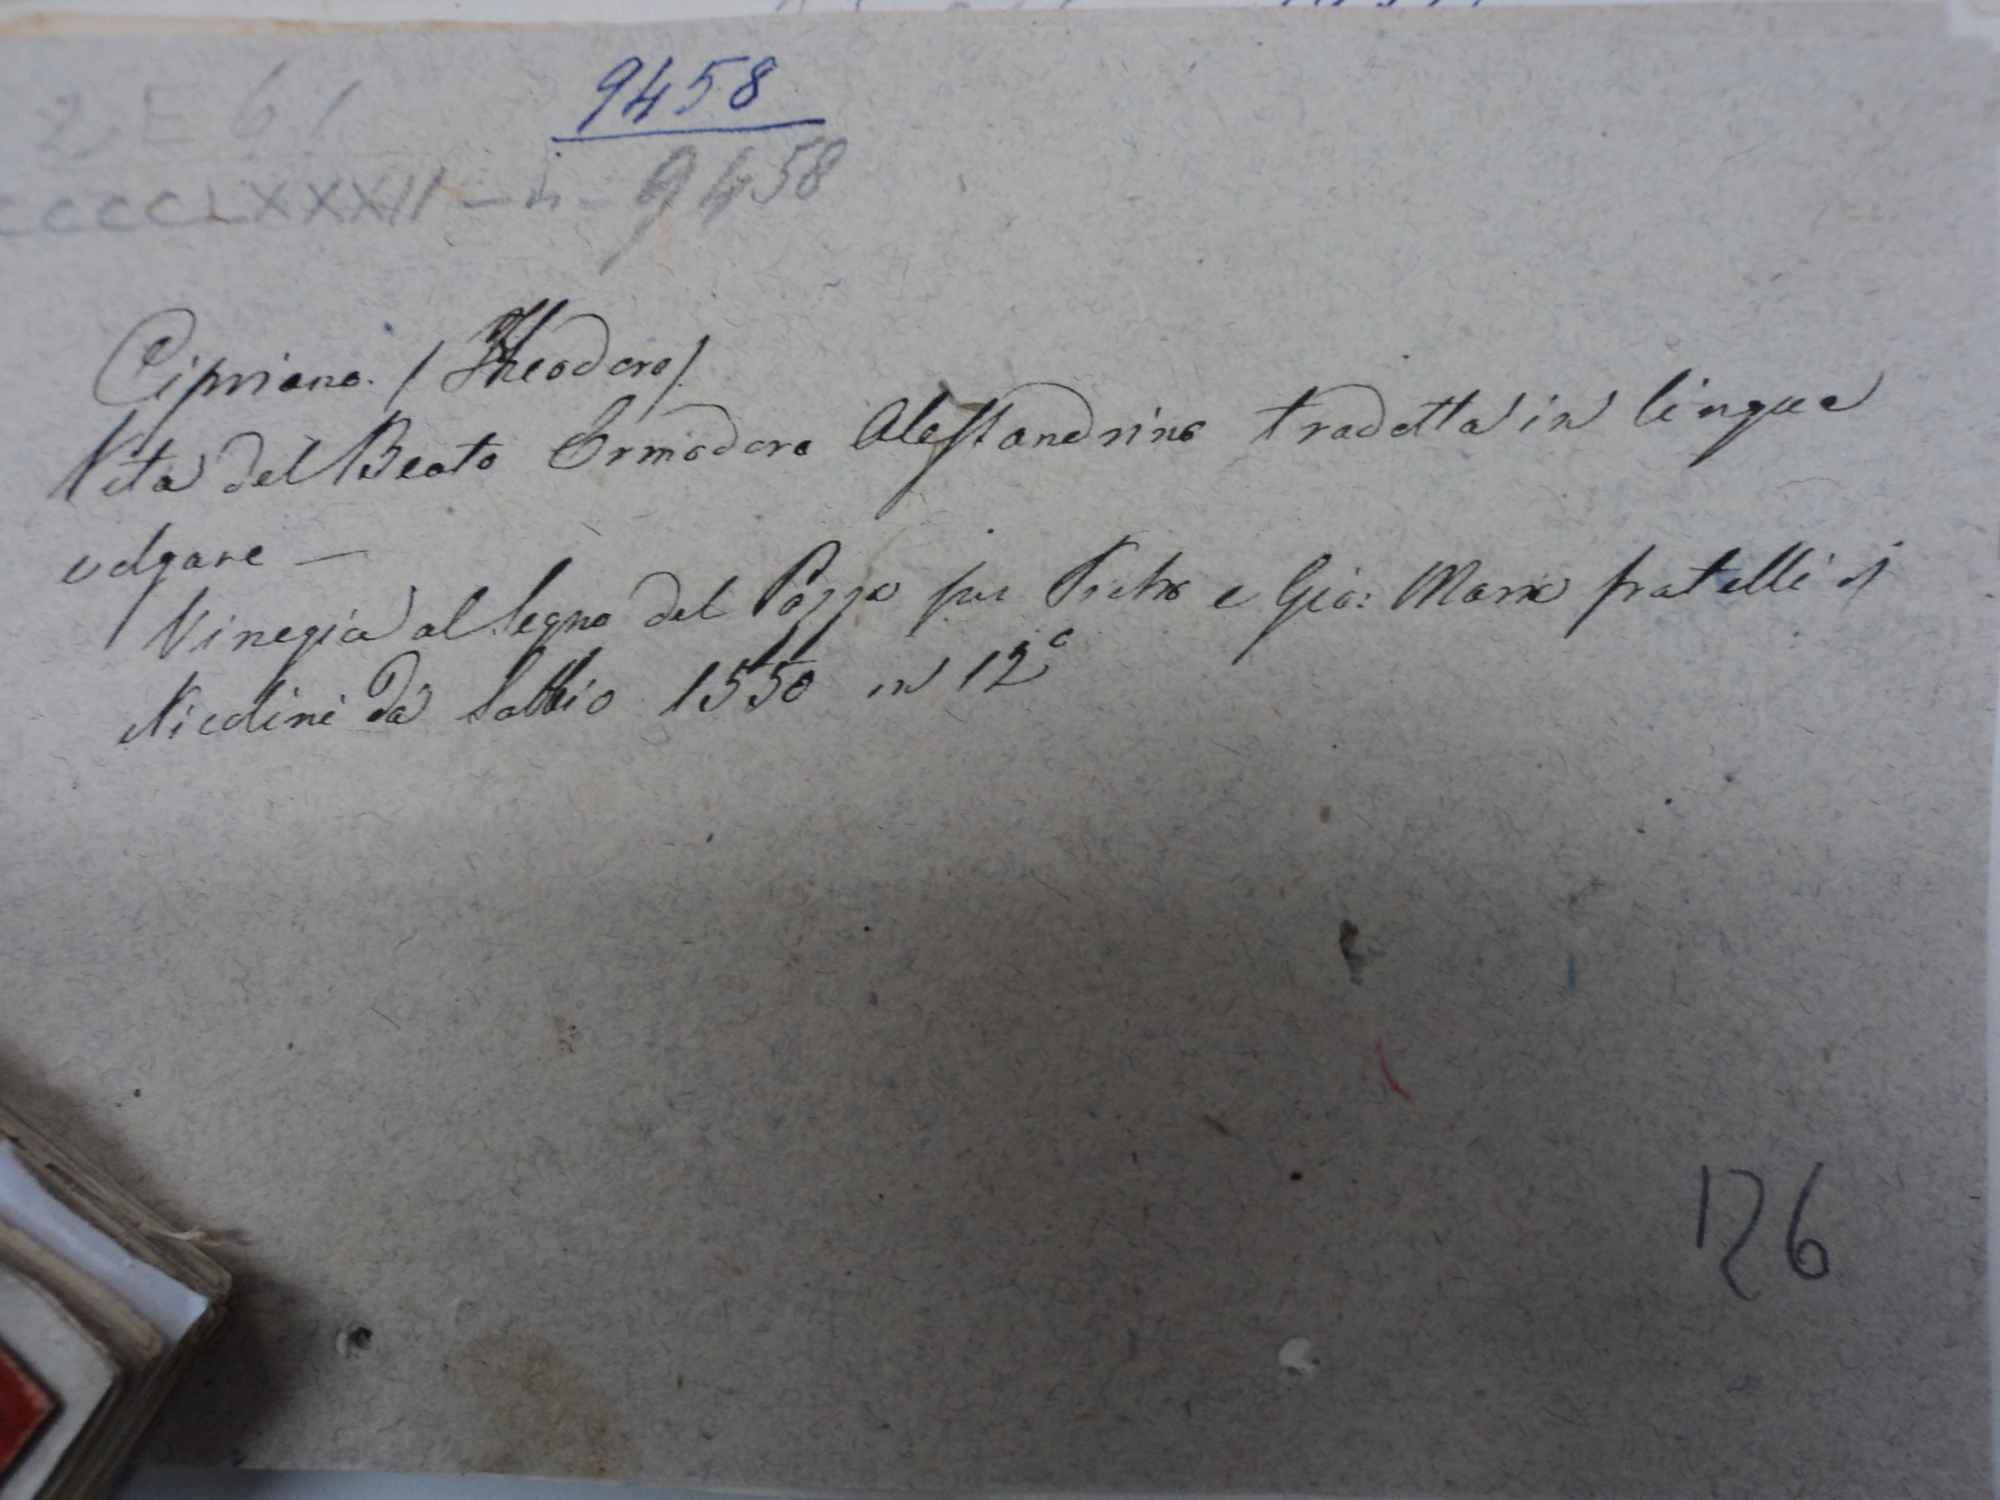 9458
2, E 61
CCCCCLXXXII - h - 9458
Cipriano. / Theodoro /
Vita del Beato Ermodoro Alessandrino tradotta in lingua
volgare —
Vinegia al Segno del Pozzo per Pietro e Gio: Maria fratelli di
Nicolini da Sabbio 1550 in 12°
126